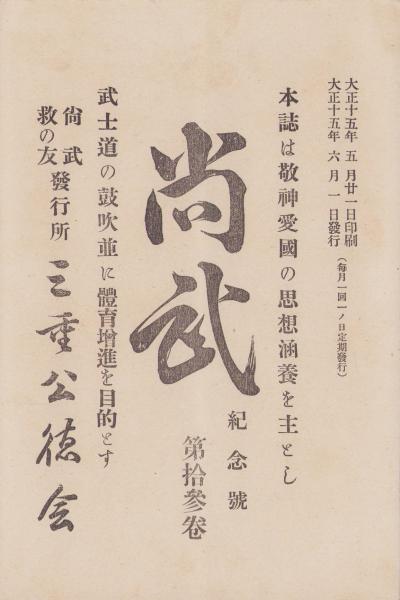 大正十五年五月廿一日印刷
大正十五年六月一日發行
(每月一回一ノ日定期發行)
本誌は敬神愛國の思想涵養を主とし
尚武
紀念號
第拾參卷
武士道の鼓吹並に體育增進を目的とす
尙武
救の友
發行所
三重公德会